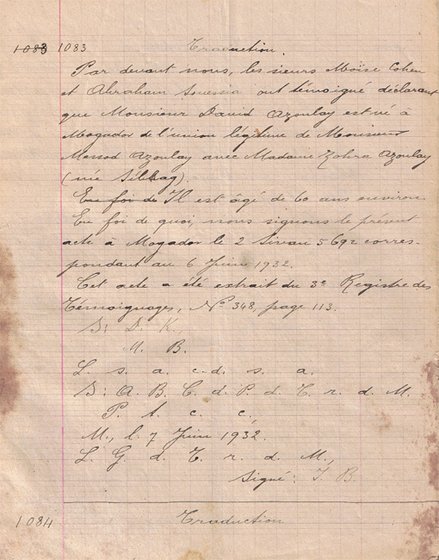 1083 1083 Traduction.
Par devant nous, les sieurs Moïse Cohen
et Abraham ont témoigné déclarant
que Monsieur David Azoulay est né à
Mogador de l'union légitime de Monsieur
Messod Azoulay avec Madame Zohra Azoulay
(née Sebbag).
En foi de Il est âgé de 60 ans environ
En foi de quoi, nous signons le présent
acte à Mogador le 2 Sivan 5692 corres-
pondant au 6 Juin 1932.
Cet acte a été extrait du 3e Registre des
Témoignages, No 348, page 113.
S: D. K.
M. B.
L. s. a. c. d. s. a.
S: A. B. C. d. P. d. T. r. d. M.
P. t. c. c.
M., l. 7 Juin 1932.
L. G. d. T. r. d. M.,
Signé: J. B.
1084 Traduction